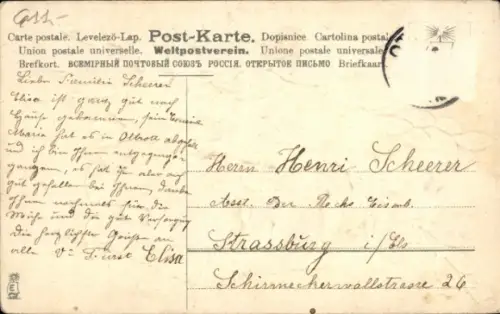 Carte postale. Levelező-Lap. Post-Karte. Dopisnice Cartolina postale
Union postale universelle. Weltpostverein. Unione postale universale
Brefkort. ВСЕМІРНЫЙ ПОЧТОВЫЙ СОЮЗЪ РОССІЯ. ОТКРЫТОЕ ПИСЬМО Briefkaart
Liebe Familie Scheerer
Elisa ist ganz gut nach
Hause gekommen,
Marie hat es in abgeholt
und ich bin Ihnen entgegenge-
gangen, es hat ihr aber auch
gut gefallen bei Ihnen, danke
Ihnen nochmals für die
Mühe und die gute Versorgung
Die herzlichste Grüße an
alle Elisa
Herrn Henri Scheerer
Asst. Der Reichs Eisenb.
Strassburg i/Els
Schirmeckerwallstrasse 26
E